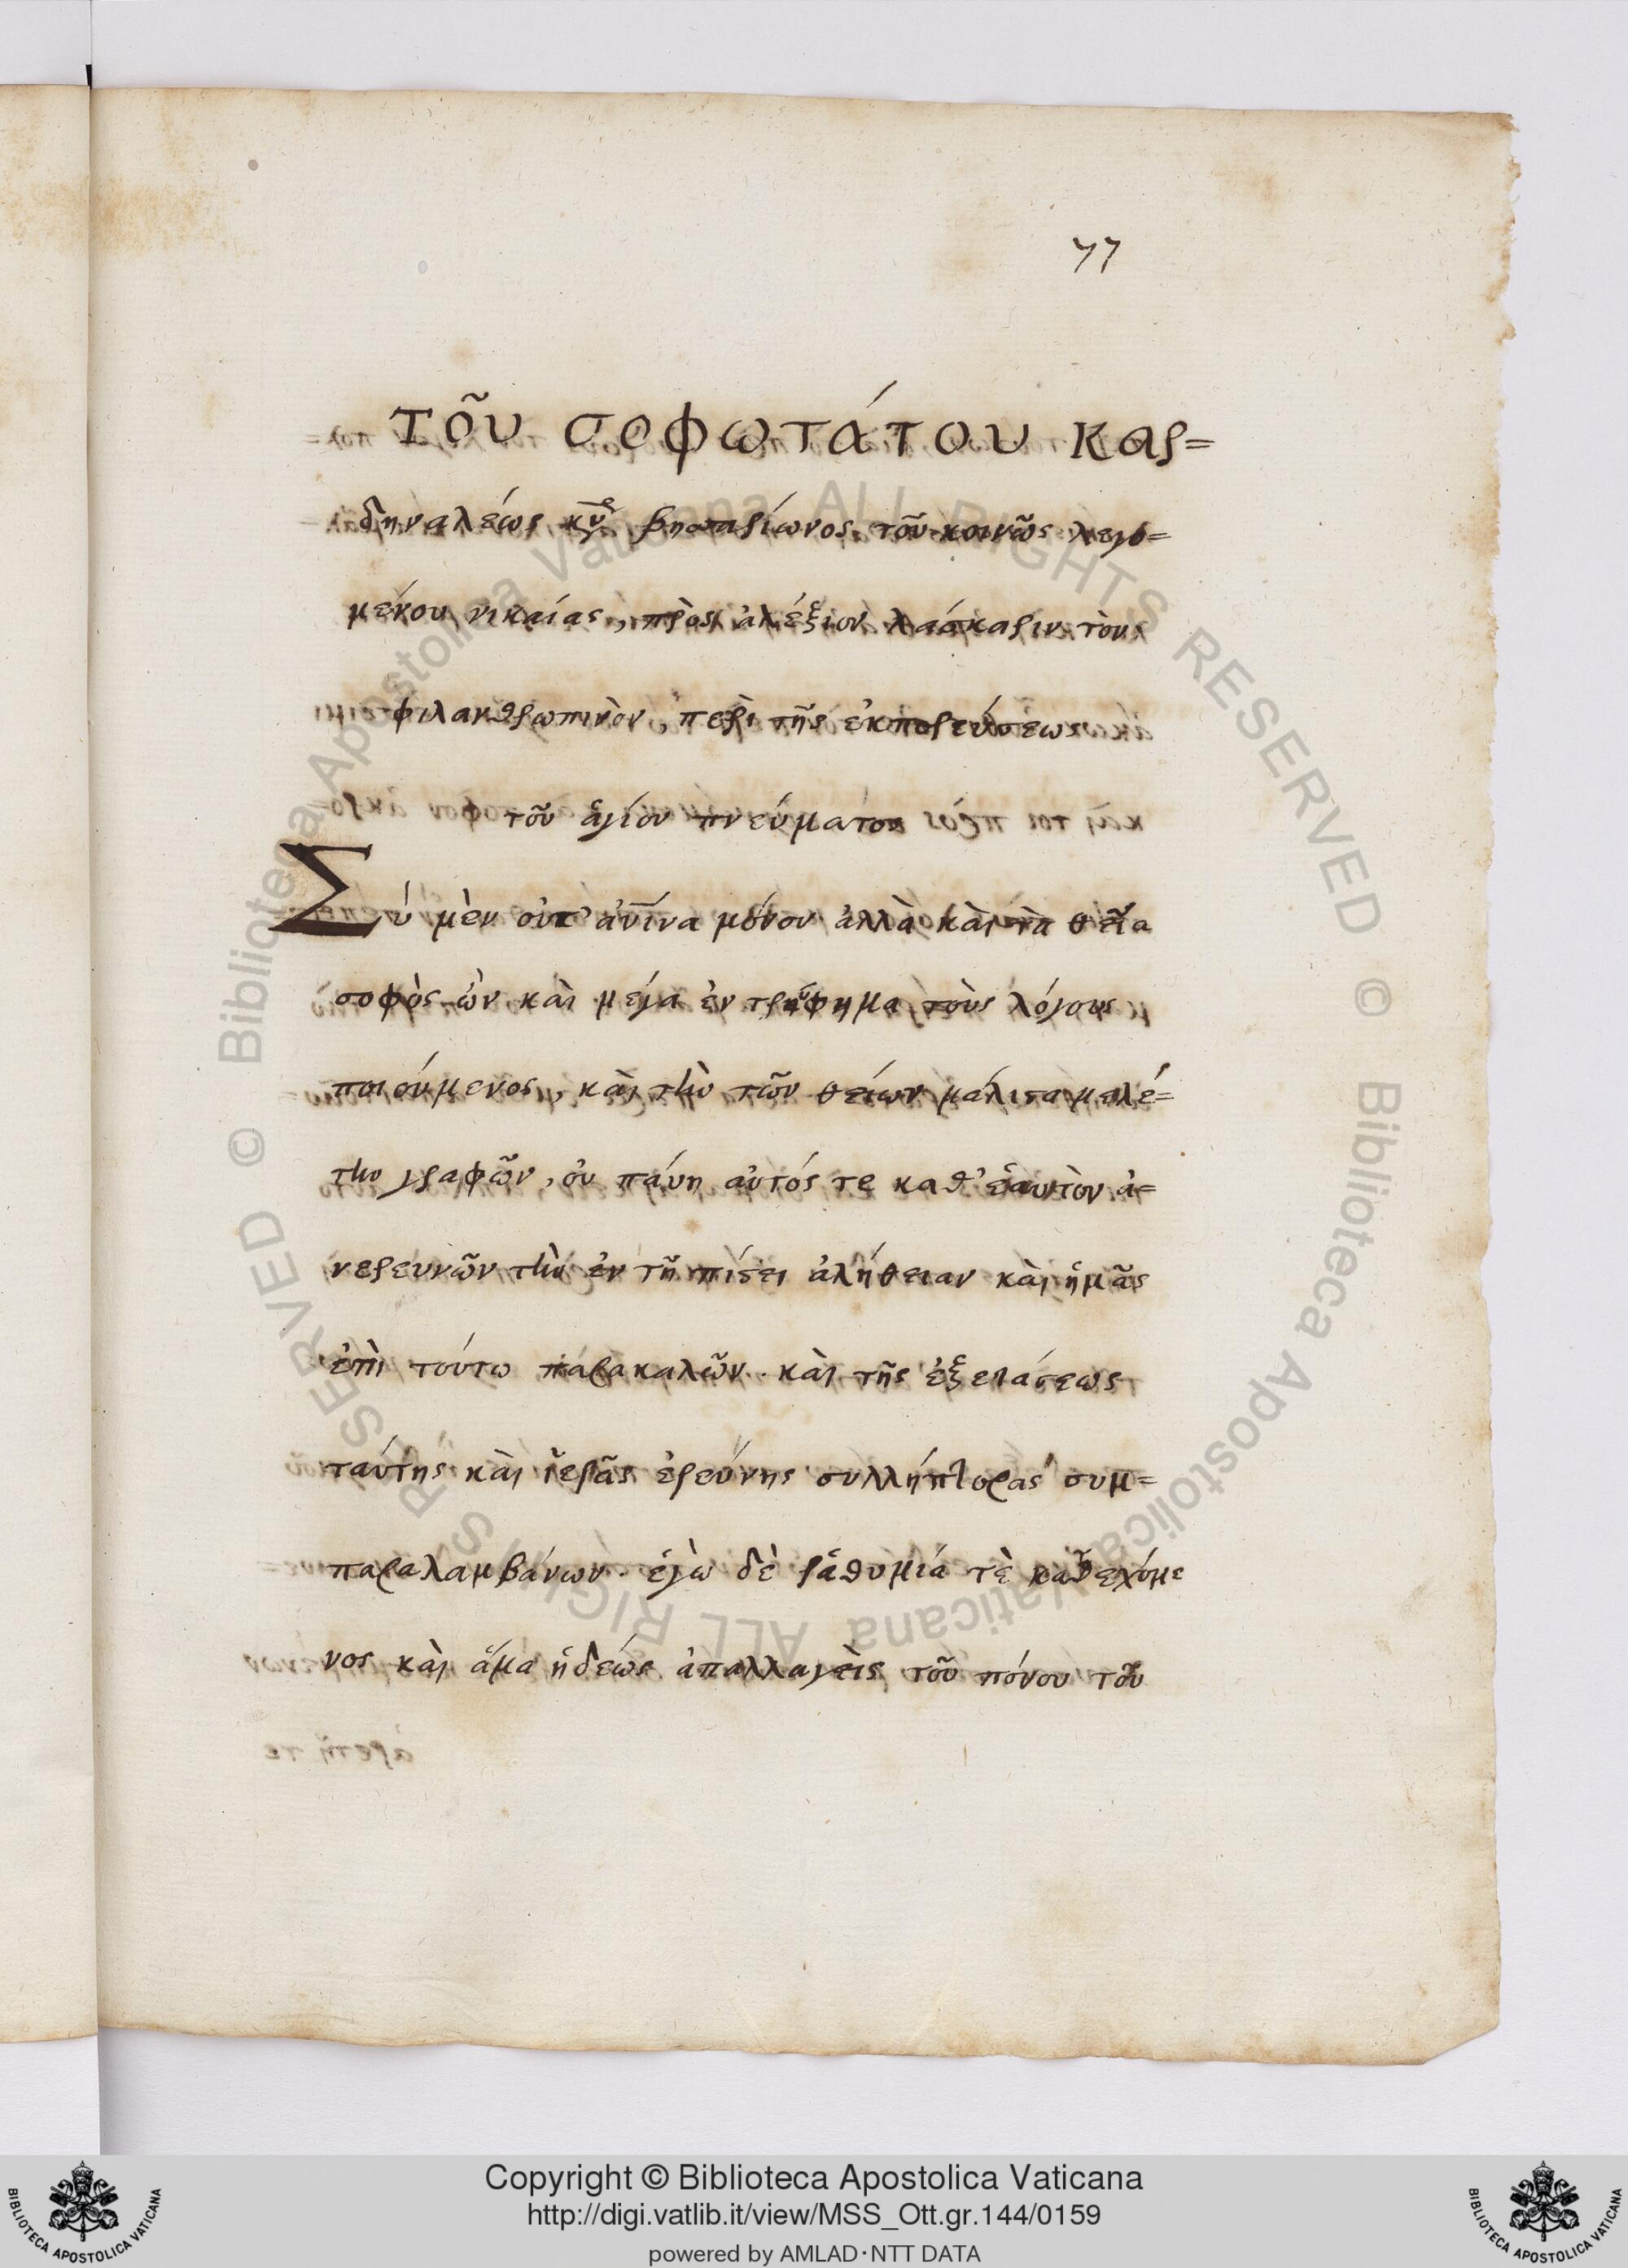 77
Τοῦ σοφωτάτου καρ=
δηναλέως κῦρ βησσαρίωνος τοῦ κοινῶς λεγο=
μένου νικαίας, πρὸς ἀλέξιον λάσκαριν τὸν
φιλανθρωπινὸν, περὶ τῆς ἐκπορεύσεως
τοῦ ἁγίου πνεύματος
Σύ μὲν οὐ μόνον ἀλλὰ καὶ τὰ θεῖα
σοφὸς ὢν καὶ μέγα ἐν τρύφημα τοὺς λόγους
ποιούμενος, καὶ τὴν τῶν θείων μάλιστα μελέ=
την γραφῶν, οὐ παύη αὐτός τε καθ' ἑαυτὸν ἀ=
νερευνῶν τὴν ἐν τῇ πίστει ἀλήθειαν καὶ ἡμᾶς
ἐπὶ τούτω παρακαλῶν· καὶ τῆς ἐξετάσεως
ταύτης καὶ ἱερᾶς ἐρεύνης συλλήπτορας συμ=
παραλαμβάνων· ἐγὼ δὲ ῥαθυμία τὲ κατεχόμε
νος καὶ ἅμα ἡδέως ἀπαλλαγεὶς τοῦ πόνου τοῦ
Copyright © Biblioteca Apostolica Vaticana
http://digi.vatlib.it/view/MSS_Ott.gr.144/0159
powered by AMLAD·NTT DATA
BIBLIOTECA APOSTOLICA VATICANA
BIBLIOTECA APOSTOLICA VATICANA
© Biblioteca Apostolica Vaticana ALL RIGHTS RESERVED © Biblioteca Apostolica Vaticana ALL RIGHTS RESERVED